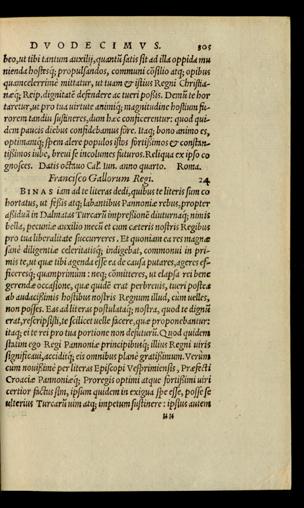 DVODECIMVS. 305
beo, ut tibi tantum auxilij, quantũ satis sit ad illa oppida mu
nienda hostesq; propulsandos, communi cõsilio atq; opibus
quamcelerrimè mittatur, ut tuam & istius Regni Christia-
næq; Reip. dignitatẽ defendere ac tueri possis. Demũ te hor
taretur, ut pro tua uirtute animiq; magnitudine hostium fu-
rorem tandiu sustineres, dum hæc conficerentur: quod qui-
dem paucis diebus confidebamus fore. Itaq; bono animo es,
optimamq; spem alere populos istos fortissimos & constan-
tissimos iube, breui se incolumes futuros. Reliqua ex ipso co
gnosces. Datis octauo Cal. Iun. anno quarto. Roma.
Francisco Gallorum Regi. 24
BINAS iam ad te literas dedi, quibus te literis sum co
hortatus, ut fessis atq; labantibus Pannoniæ rebus, propter
assiduã in Dalmatas Turcarũ impressionẽ diuturnaq; nimis
bella, pecuniæ auxilio mecũ et cum cæteris nostris Regibus
pro tua liberalitate succurreres. Et quoniam ea res magnæ
sanè diligentiæ celeritatisq; indigebat, commonui in pri-
mis te, ut quæ tibi agenda esse ea de causa putares, ageres ef-
ficeresq; quamprimum: neq; cõmitteres, ut elapsa rei bene
gerendæ occasione, quæ quidẽ erat perbreuis, tueri postea
ab audacissimis hostibus nostris Regnum illud, cùm uelles,
non posses. Eas ad literas postulataq; nostra, quod te dignũ
erat, rescripsisti, te scilicet uelle facere, quæ proponebantur:
itaq; et te rei pro tua portione non deiuturũ. Quod quidem
statim ego Regi Pannoniæ principibusq; illius Regni uiris
significaui, acciditq; eis omnibus planè gratissimum. Verùm
cum nouissimè per literas Episcopi Vesprimiensis, Præfecti
Croaciæ Pannoniæq; Proregis optimi atque fortissimi uiri
certior factus sim, ipsum quidem in exigua spe esse, posse se
ulterius Turcarũ uim atq; impetum sustinere: ipsius autem